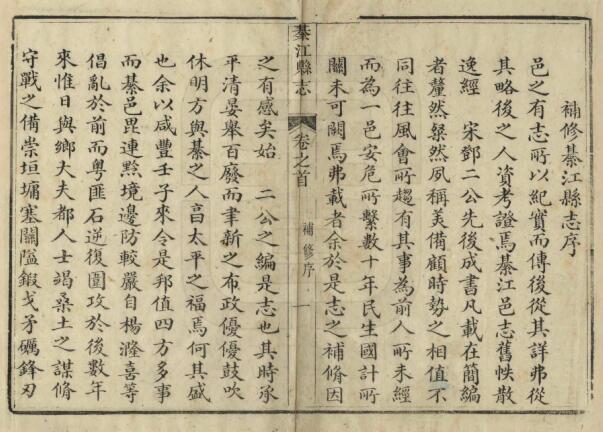 補修綦江縣志序
邑之有志所以紀實而傳後從其詳弗從
其略後之人資考證焉綦江邑志舊帙散
逸經 宋鄧二公先後成書凡載在簡編
者釐然粲然夙稱美備顧時勢之相值不
同往往風會所趨有其事為前人所未經
而為一邑安危所繫數十年民生國計所
關未可闕焉弗載者余於是志之補脩因
綦江縣志
卷之首
補修序
一
之有感矣始 二公之編是志也其時承
平清晏舉百廢而聿新之布政優優鼓吹
休明方與綦之人亯太平之福焉何其盛
也余以咸豐壬子來令是邦值四方多事
而綦邑毘連黔境邊防較嚴自楊漋喜等
倡亂於前而粵匪石逆復圍攻於後數年
來惟日與鄉大夫都人士竭桑土之謀脩
守戰之備崇垣墉塞關隘鍜戈矛礪鋒刃